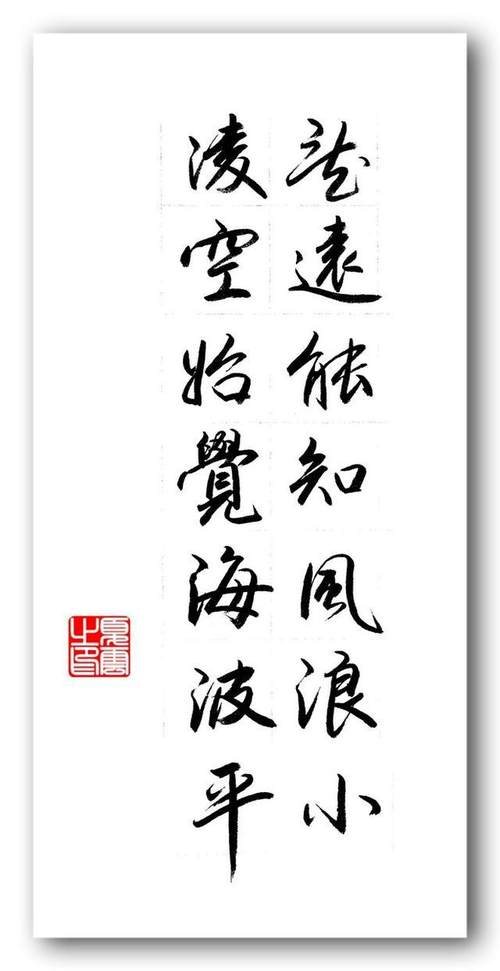 遠能知風浪小
凌空始覺海波平